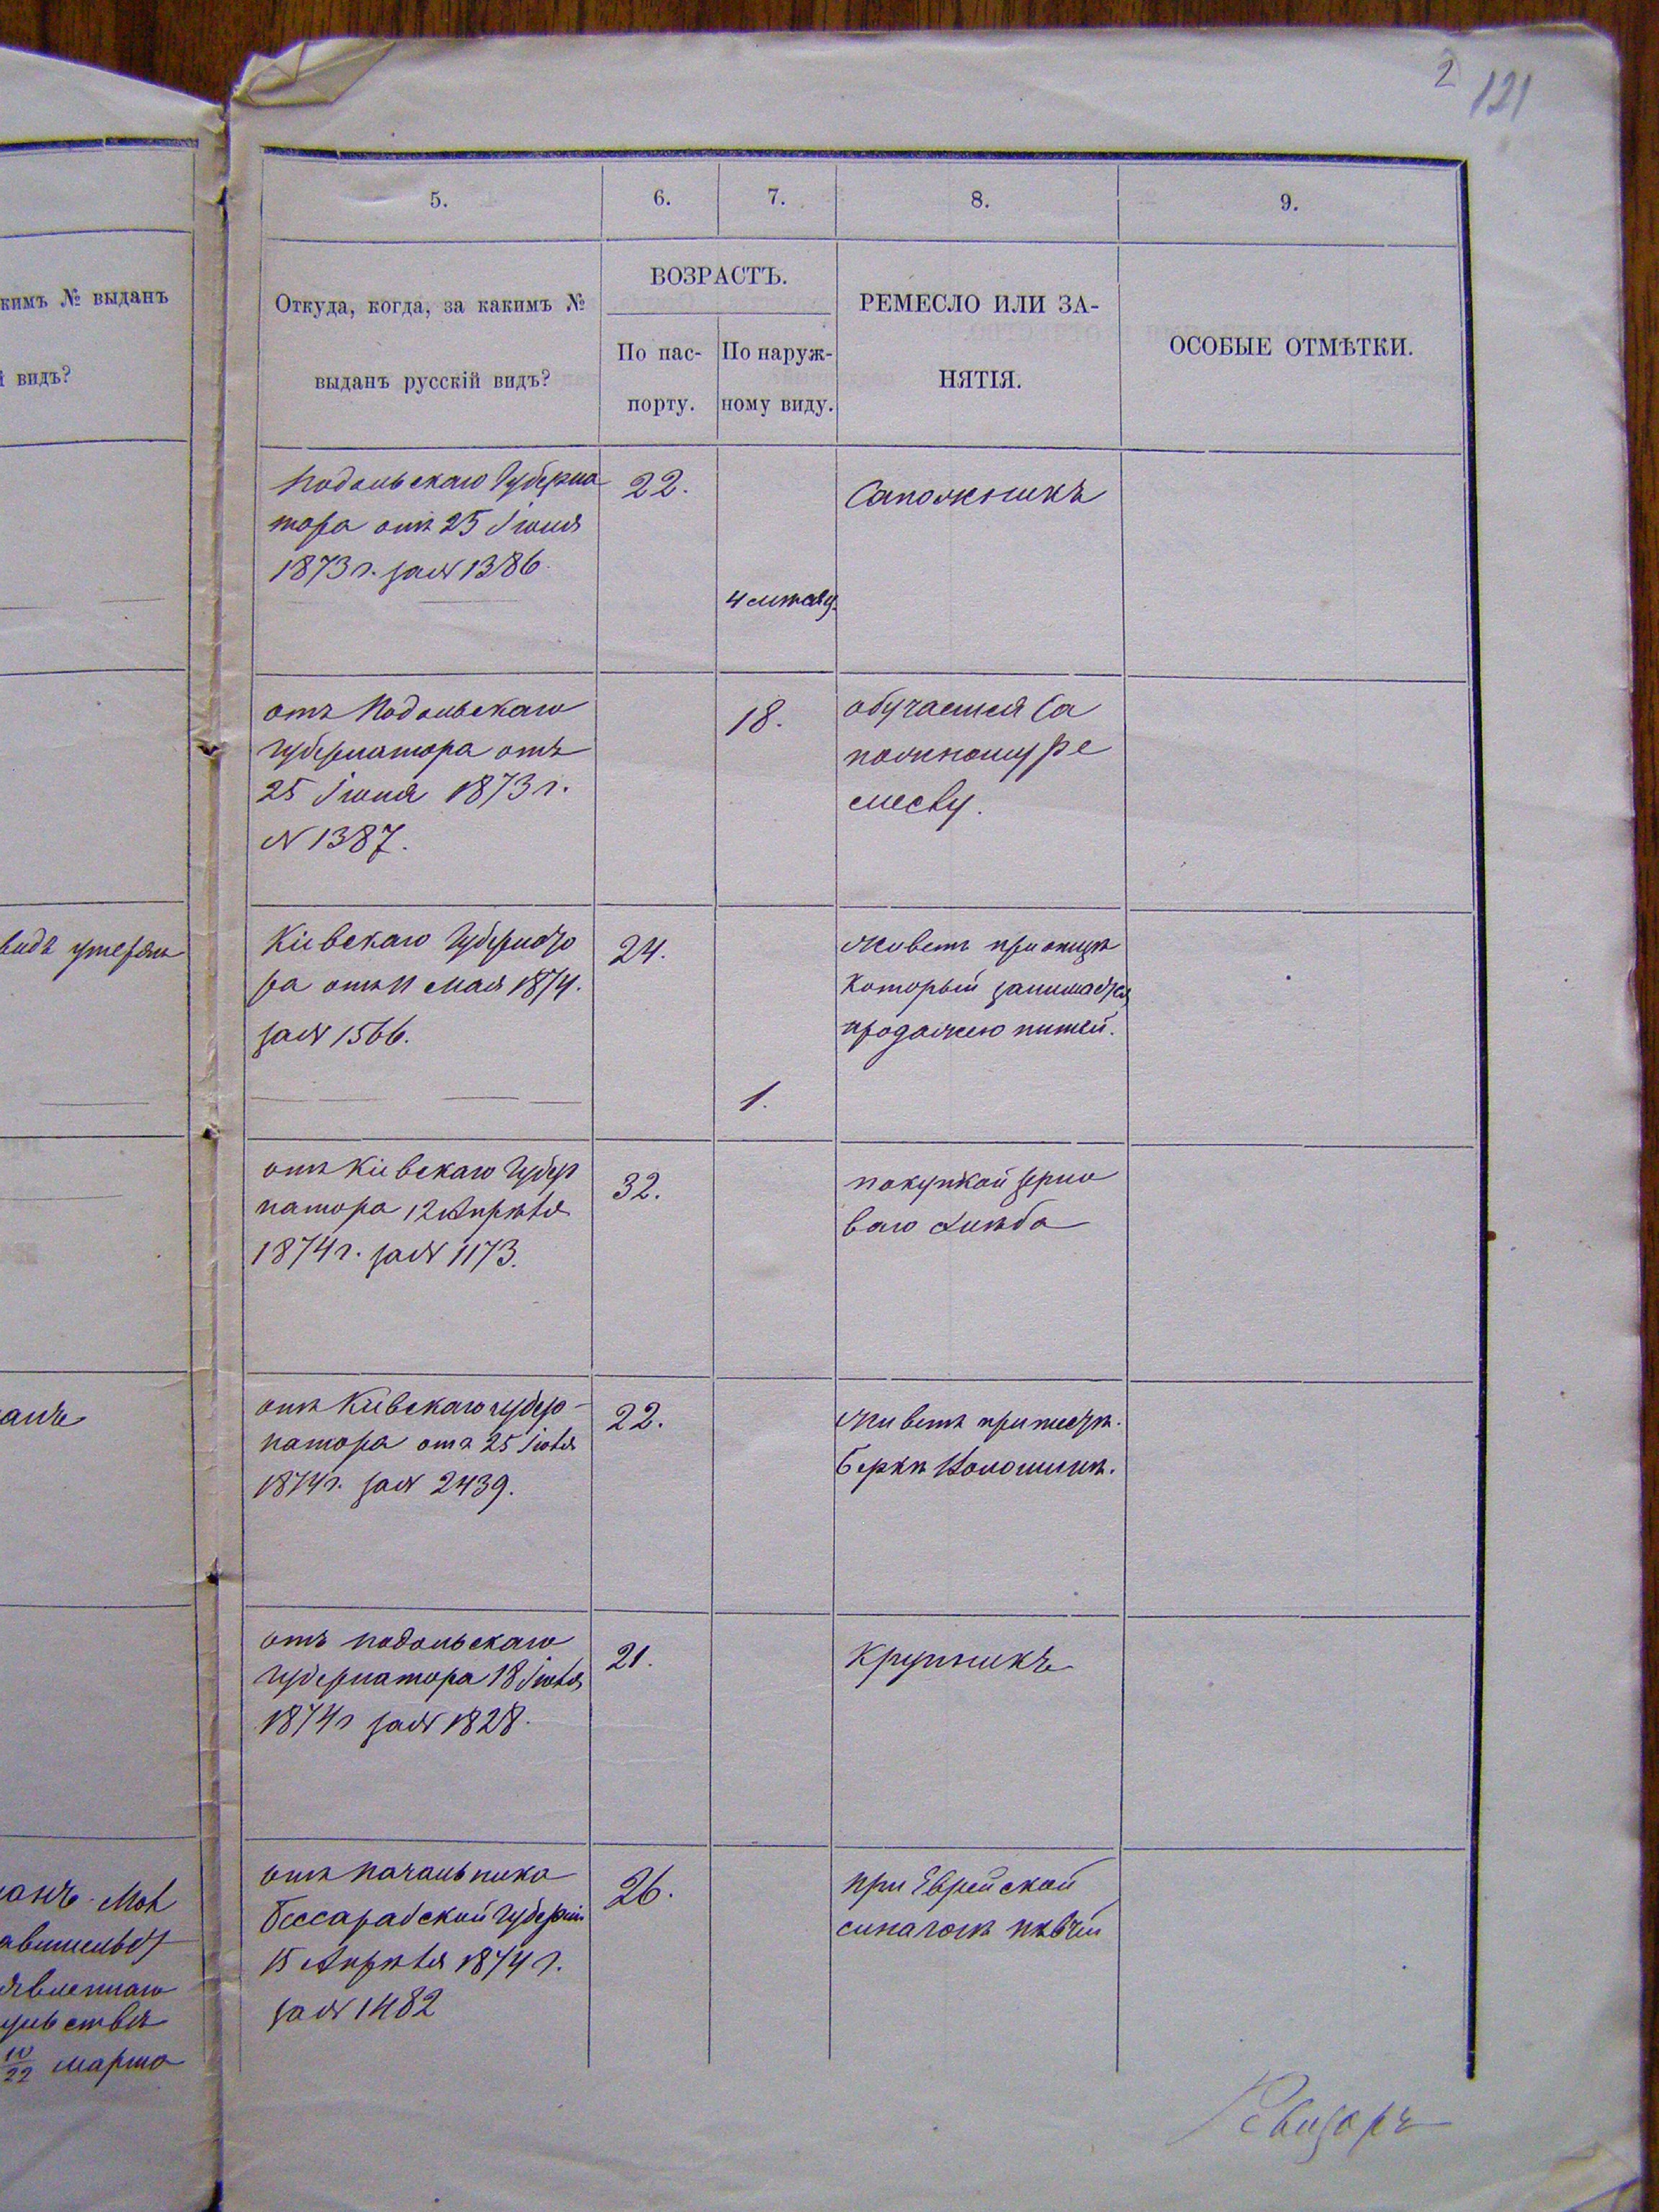 2 121
кимъ № выданъ
й видъ?
видъ утерянъ
марта
5. 6. 7. 8. 9.
Откуда, когда, за какимъ №
выданъ русскій видъ?
ВОЗРАСТЪ.
По пас-
порту.
По наруж-
ному виду.
РЕМЕСЛО ИЛИ ЗА-
НЯТІЯ.
ОСОБЫЕ ОТМѢТКИ.
Подольскаго Губерна
тора отъ 25 Іюня
1873 г. за № 1386.
22.
Сапожникъ
отъ Подольскаго
Губернатора отъ
25 Іюня 1873 г.
№ 1387.
18.
обучается са
пожному ре
меслу.
Кіевскаго Губернато
ра отъ 11 мая 1874.
за № 1566.
24.
1.
живетъ при отцѣ
который занимается
продажею питей.
отъ Кіевскаго Губер
натора 12 Апрѣля
1874 г. за № 1173.
32.
покупкой зерно
ваго хлѣба
отъ Кіевскаго губер-
натора отъ 25 Іюля
1874 г. за № 2439.
22.
живетъ при тестѣ.
Беркѣ
отъ подольскаго
Губернатора 18 Іюля
1874 г за № 1828.
21.
Крупникъ
отъ Начальника
Бессарабской Губерніи
15 Апрѣля 1874 г.
за № 1482
26.
при Еврейской
синагогѣ пѣвчій
Ревизоръ